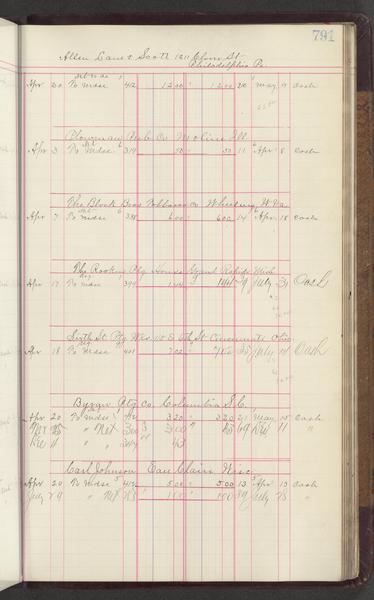 791
Allen Lane & Scott 1211 Clover St
Philadelphia Pa.
Apr 20 To Mdse 412 1200 1200 20 May 9 Cash
Plowman Pub Co Moline Ill
Apr 3 To Mdse 319 50 50 11 Apr 8 Cash
The Block Bros Tobacco Co Wheeling W Va
Apr 7 To Mdse 338 600 600 14 Apr 18 Cash
The Rookus Ptg House Grand Rapids Mich
Apr 17 To Mdse 399 144 144 9 July 31 Cash
Sixth St Ptg Wks 110 E 6th St Cincinnati Ohio
Apr 18 To Mdse 401 700 700 35 July 14 Cash
Byran Ptg Co. Columbia S.C.
Apr 20 To Mdse 412 320 320 21 May 15 Cash
Nov 25 " Net 300 300 Dec 11 "
Dec 11 " 43
Carl Johnson Eau Clair Wisc
Apr 20 To Mdse 412 500 500 13 Apr 13 Cash
July 29 " 100 100 39 July 28 "